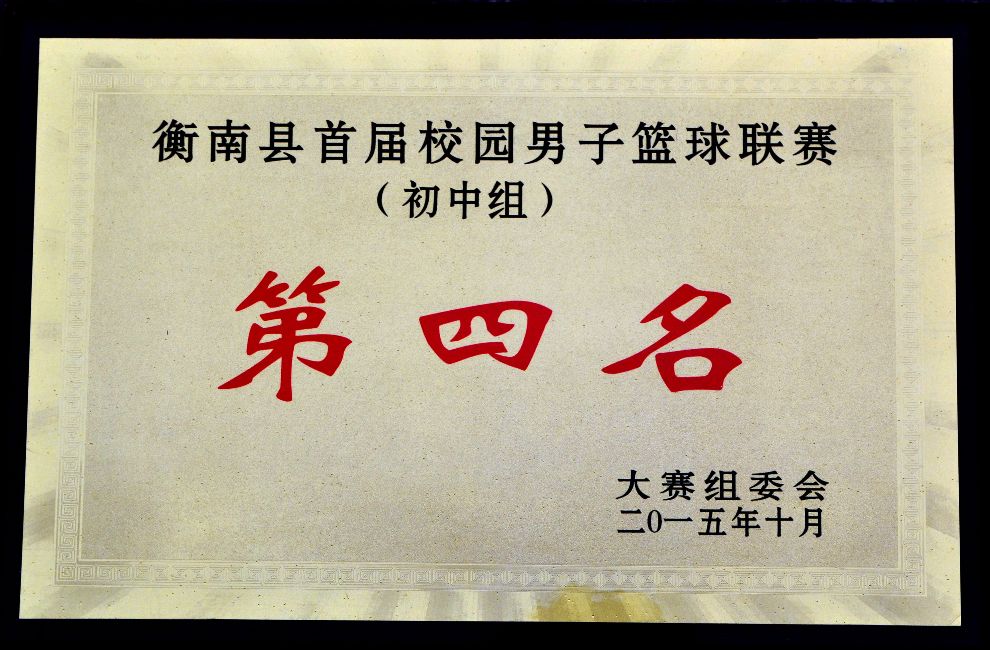 衡南县首届校园男子篮球联赛
（初中组）
第四名
大赛组委会
二0一五年十月